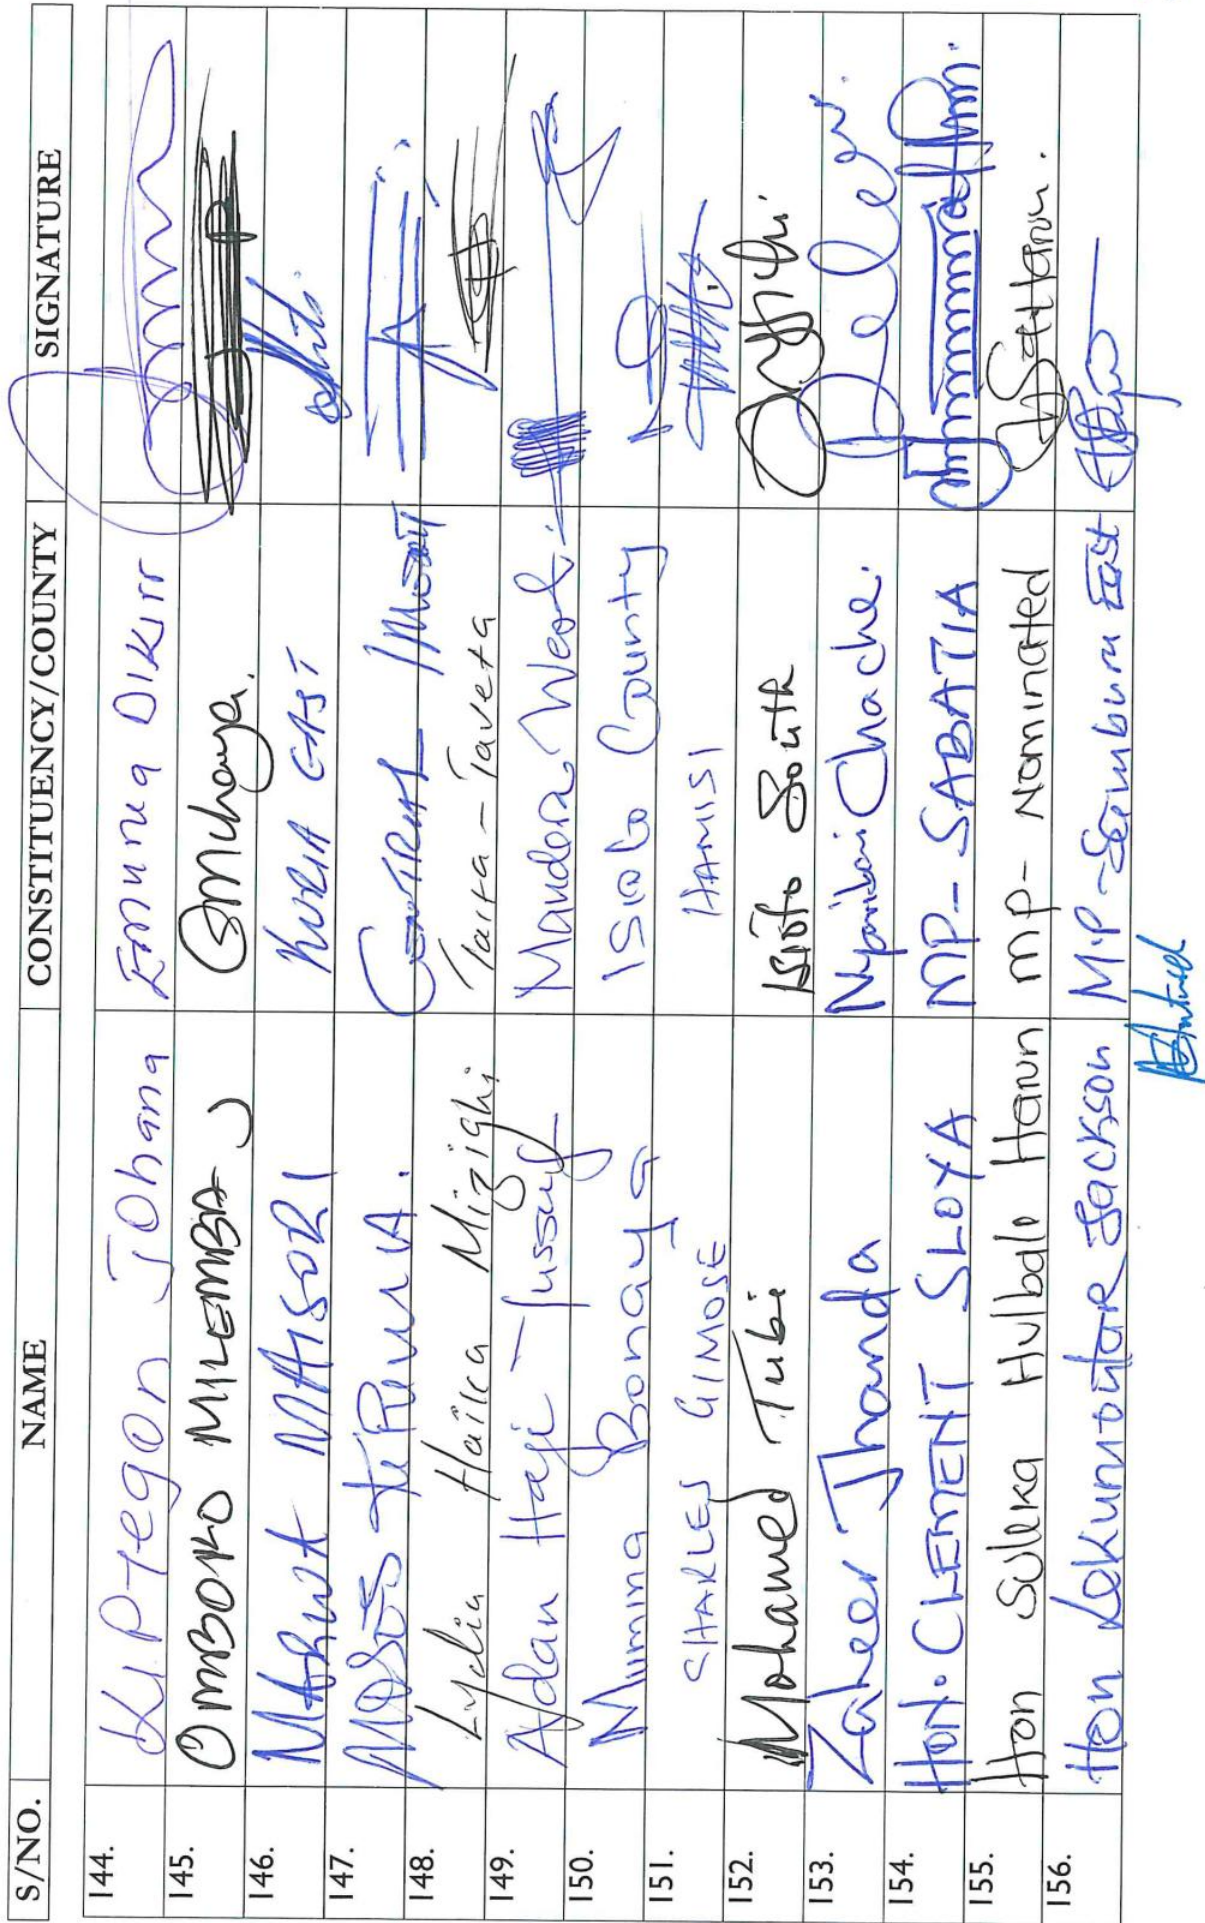 S/NO. NAME CONSTITUENCY/COUNTY SIGNATURE
144. Kipregon Johana Emurua Dikirr
145. OMBOKO MILEMBA
146. MARWA MAISORI KURIA EAST
147. MOSES KIRIMA. CENTRAL IMENTI
148. Lydia Haika Mizighi Taita-Taveta
149. Adan Haji-Yussuf Mandera West
150. Mumina Bonaya Isiolo County
151. CHARLES GIMOSE HAMISI
152. Mohamed Tubi Isiolo South
153. Zaheer Jhanda Nyaribari Chache.
154. HON. CLEMENT SLOYA MP-SABATIA
155. Hon Suleka Hulbale Harun MP-Nominated
156. Hon Lekumontare Jackson M.P-Samburu East